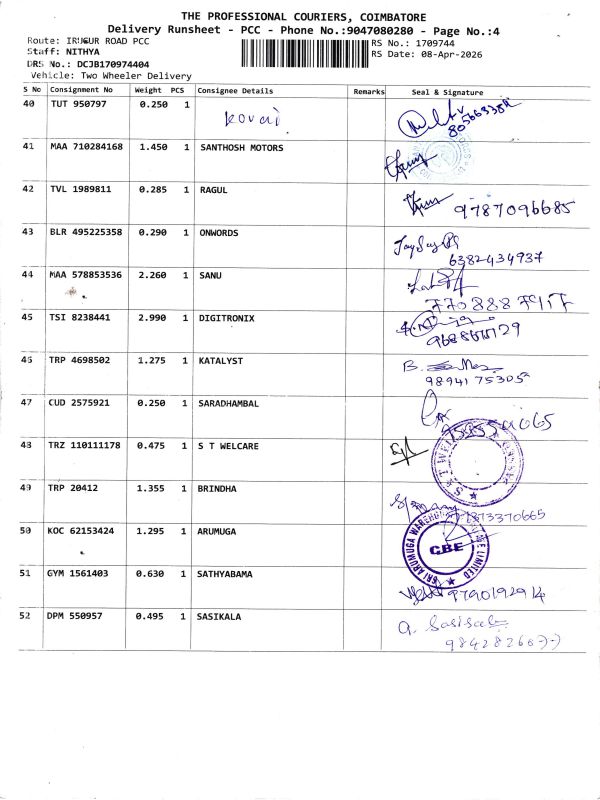 THE PROFESSIONAL COURIERS, COIMBATORE
Delivery Runsheet - PCC - Phone No.:9047080280 - Page No.:4
Route: IRUGUR ROAD PCC
RS No.: 1709744
Staff: NITHYA
RS Date: 08-Apr-2026
DRS No.: DCJB170974404
Vehicle: Two Wheeler Delivery
S No Consignment No Weight PCS Consignee Details Remarks Seal & Signature
40 TUT 950797 0.250 1 kovai
41 MAA 710284168 1.450 1 SANTHOSH MOTORS
42 TVL 1989811 0.285 1 RAGUL 9787096685
43 BLR 495225358 0.290 1 ONWORDS
6382434937
44 MAA 578853536 2.260 1 SANU
45 TSI 8238441 2.990 1 DIGITRONIX
46 TRP 4698502 1.275 1 KATALYST
9894175305
47 CUD 2575921 0.250 1 SARADHAMBAL
48 TRZ 110111178 0.475 1 S T WELCARE
49 TRP 20412 1.355 1 BRINDHA
50 KOC 62153424 1.295 1 ARUMUGA
SRI ARUMUGA CBE LIMITED
51 GYM 1561403 0.630 1 SATHYABAMA
9790192914
52 DPM 550957 0.495 1 SASIKALA